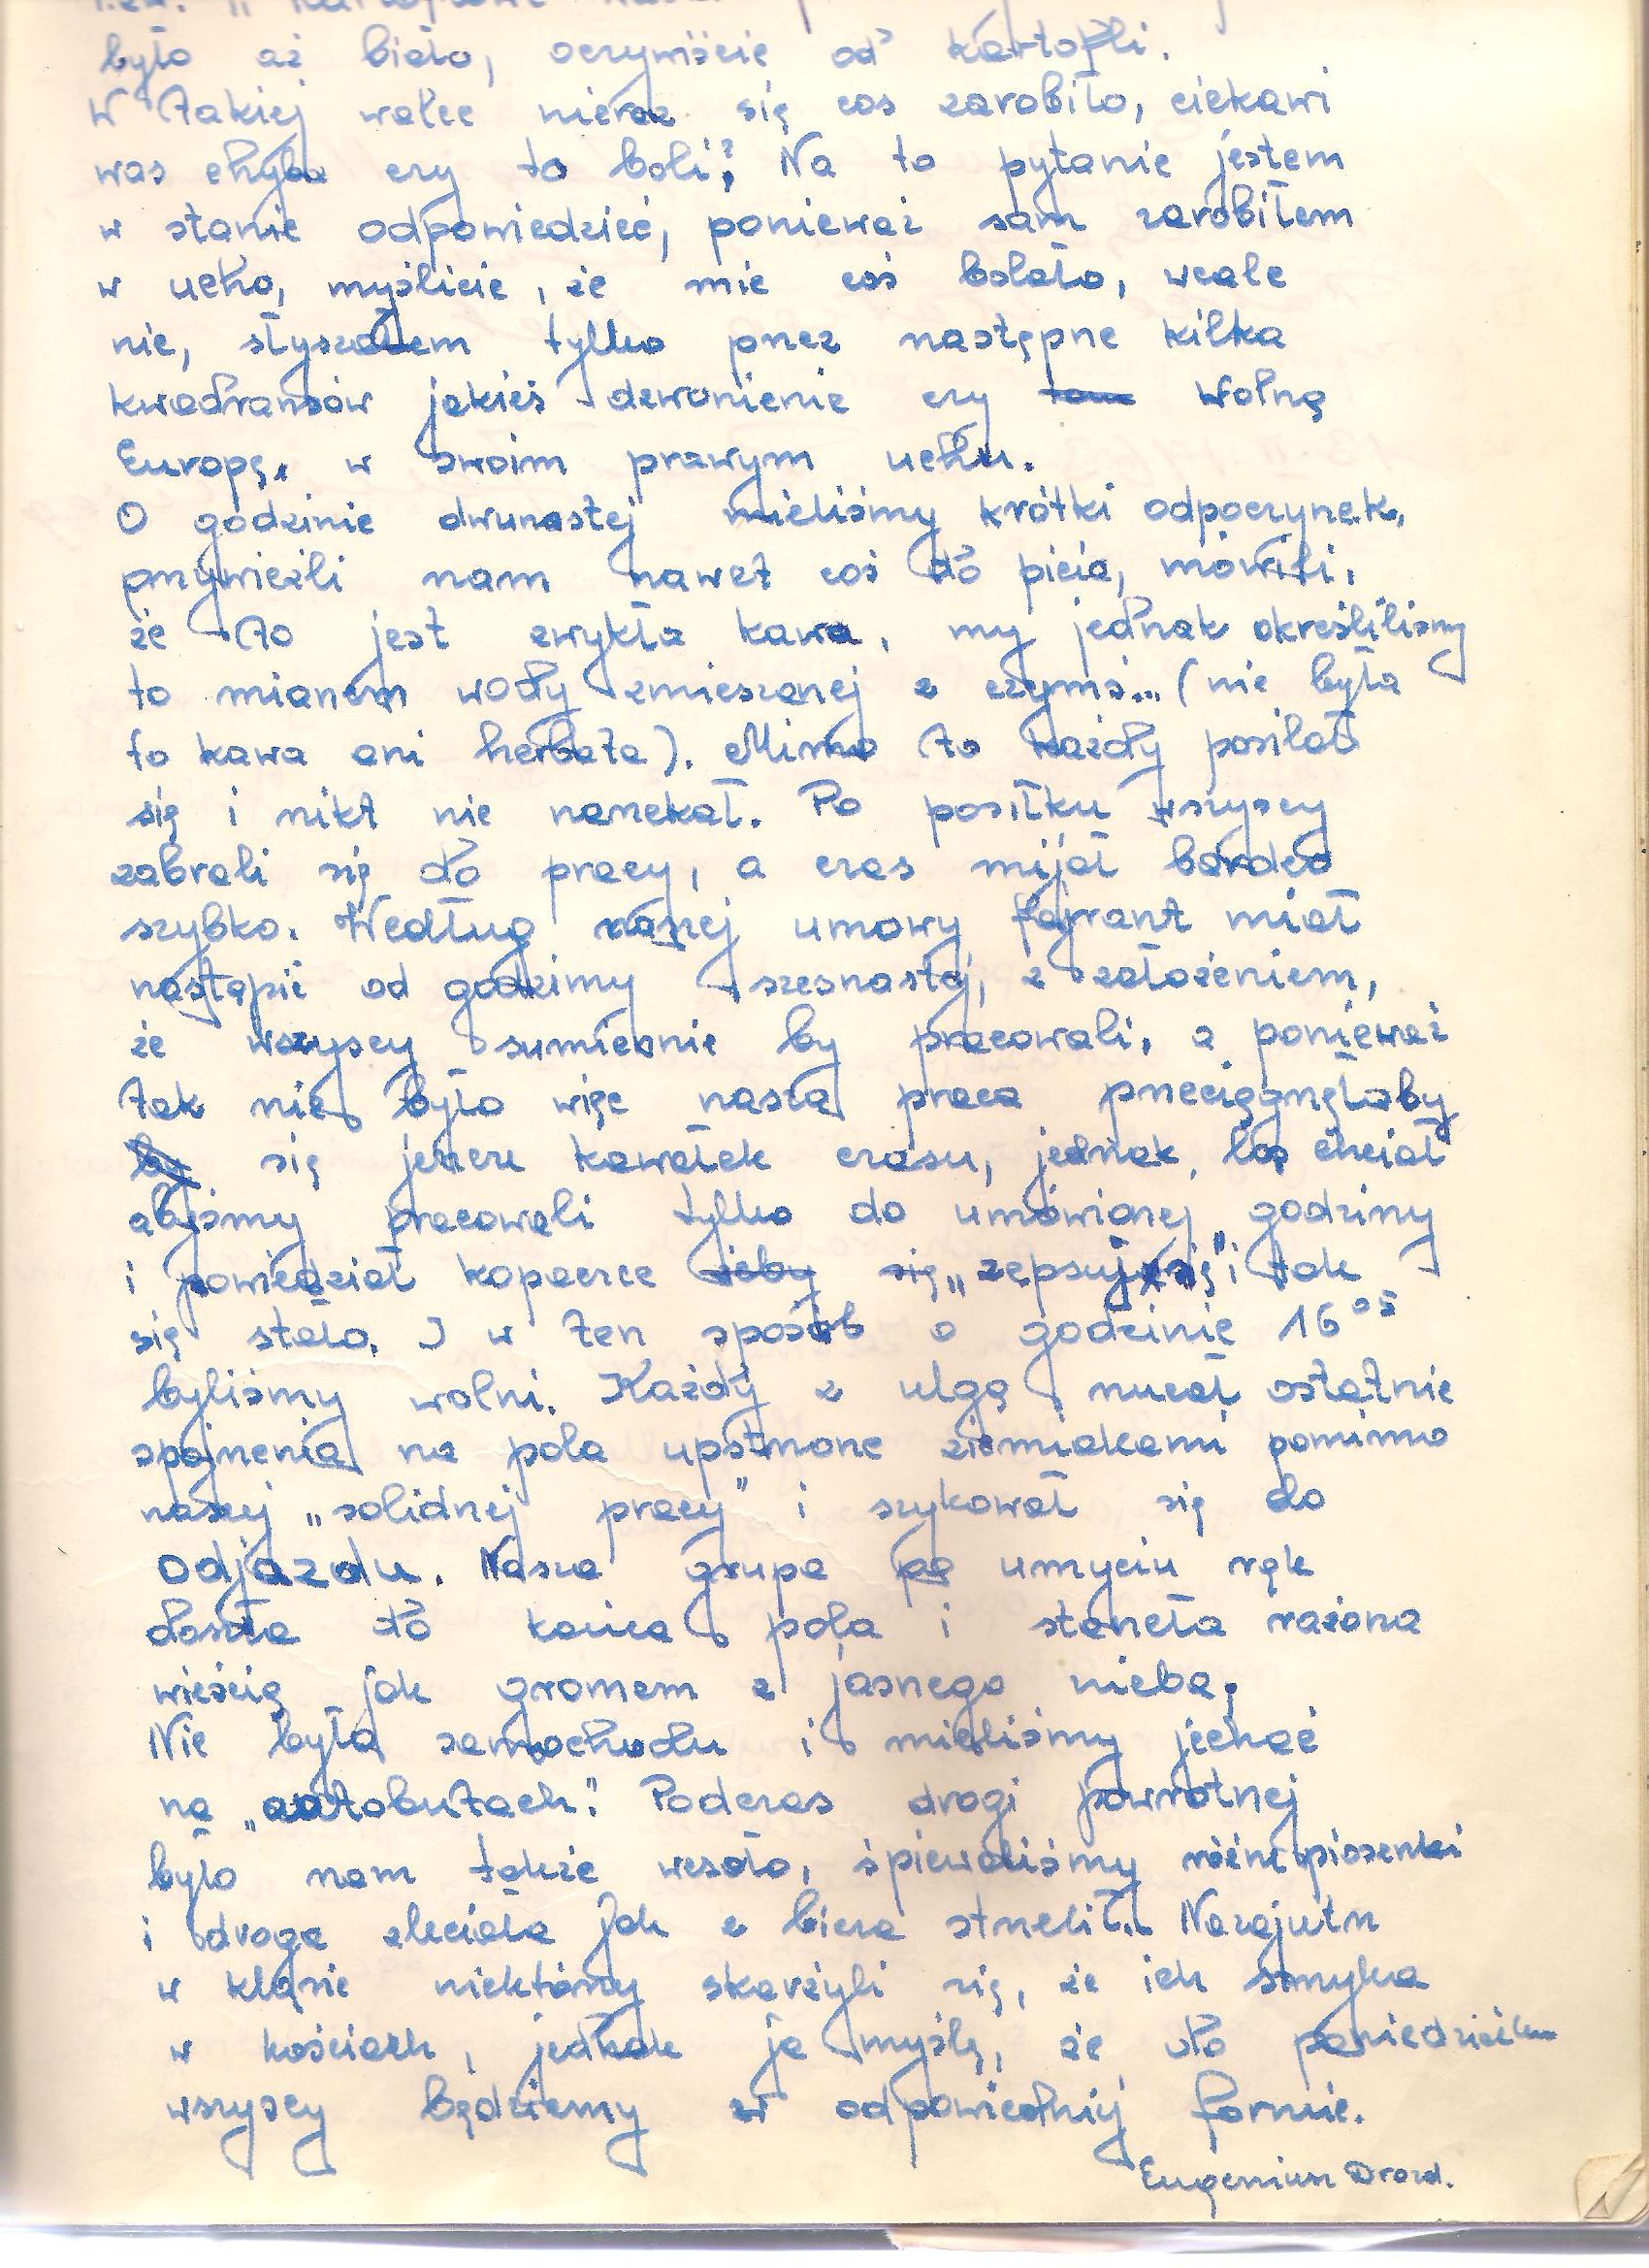 było aż biało, oczywiście od kartofli.
W takiej walce nieraz się coś zarobiło, ciekawi
was chyba czy to boli? Na to pytanie jestem
w stanie odpowiedzieć, ponieważ sam zarobiłem
w ucho, myślicie, że mie coś bolało, wcale
nie, słyszałem tylko przez następne kilka
kwadransów jakieś dzwonienie czy Wolną
Europę, w swoim prawym uchu.
O godzinie dwunastej mieliśmy krótki odpoczynek,
przywieźli nam nawet coś do picia, mówili,
że to jest zwykła kawa, my jednak określiliśmy
to mianem wody zmieszanej z czymś... (nie była
to kawa ani herbata). Mimo to każdy posilał
się i nikt nie narzekał. Po posiłku wszyscy
zabrali się do pracy, a czas mijał bardzo
szybko. Według naszej umowy fajrant miał
nastąpić od godziny szesnastej, z założeniem,
że wszyscy sumiennie by pracowali, a ponieważ
tak nie było więc nasza praca przeciągnęłaby
by się jeszcze kawałek czasu, jednak los chciał
abyśmy pracowali tylko do umówionej godziny
i powiedział kopaczce żeby się „zepsuj się" i tak
się stało. I w ten sposób o godzinie 16⁰⁵
byliśmy wolni. Każdy z ulgą rzucał ostatnie
spojrzenia na pola upstrzone ziemiakami pomimo
naszej „solidnej pracy" i szykował się do
odjazdu. Nasza grupa po umyciu rąk
doszła do końca pola i stanęła rażona
wieścią jak gromem z jasnego nieba;
Nie było samochodu i mieliśmy jechać
na „autobutach". Podczas drogi powrotnej
było nam także wesoło, śpiewaliśmy różne piosenki
i droga zleciała jak z bicza strzelił. Nazajutrz
w klasie niektórzy skarżyli się, że ich strzyka
w kościach, jednak ja myślę, że do poniedziałku
wszyscy będziemy w odpowiedniej formie.
Eugeniusz Drozd.